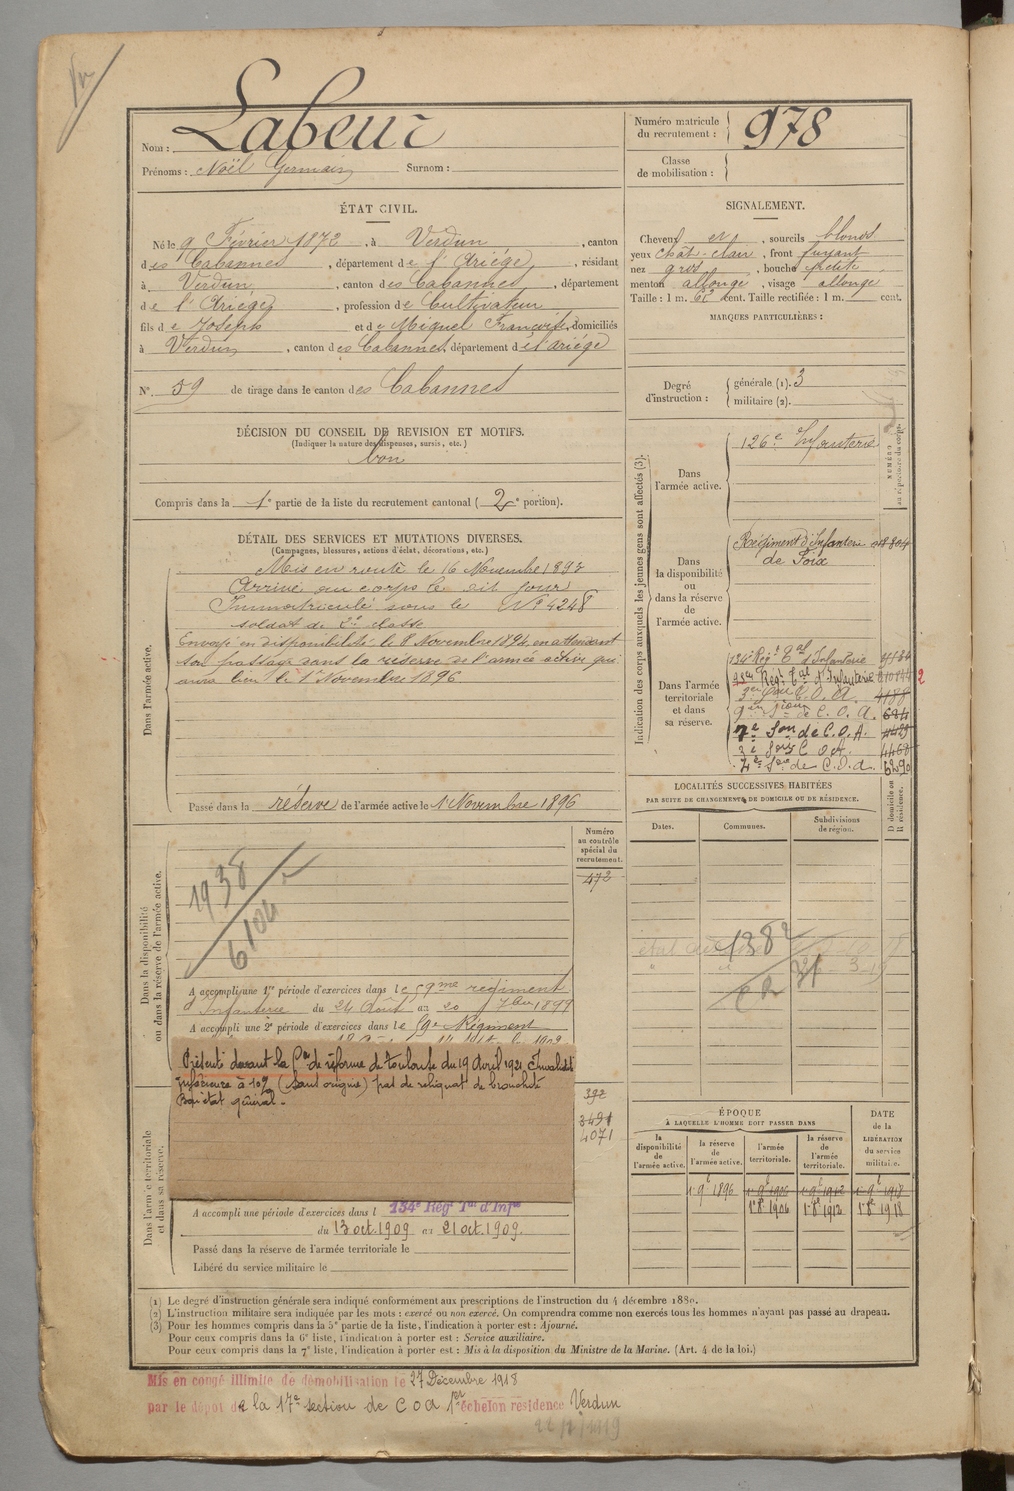 Nom : Labeur
Prénoms : Noël Germain Surnom :
Numéro matricule du recrutement : 978
Classe de mobilisation :
ÉTAT CIVIL.
Né le 9 Février 1872, à Verdun, canton
des Cabannes, département de l'Ariège, résidant
à Verdun, canton des Cabannes, département
de l'Ariège, profession de Cultivateur
fils de Joseph et de Miquel Françoise, domiciliés
à Verdun, canton des Cabannes, département de l'ariége
N° 59 de tirage dans le canton des Cabannes
SIGNALEMENT.
Cheveux et , sourcils blonds
yeux chât-clair, front fuyant
nez gros, bouche petite
menton allongé, visage allongé
Taille : 1 m. 61 cent. Taille rectifiée : 1 m. cent.
MARQUES PARTICULIÈRES :
Degré d'instruction : générale (1). 3
militaire (2).
DÉCISION DU CONSEIL DE REVISION ET MOTIFS.
(Indiquer la nature des dispenses, sursis, etc.)
bon
Compris dans la 1e partie de la liste du recrutement cantonal (2e portion).
DÉTAIL DES SERVICES ET MUTATIONS DIVERSES.
(Campagnes, blessures, actions d'éclat, décorations, etc.)
Dans l'armée active.
Mis en route le 16 Novembre 1893
Arrivé au corps le dit jour
Immatriculé sous le N° 4248
soldat de 2e classe
Envoyé en disponibilité le 8 Novembre 1894, en attendant
son passage dans la réserve de l'armée active qui
aura lieu le 1er Novembre 1896
Passé dans la réserve de l'armée active le 1er Novembre 1896
Indication des corps auxquels les jeunes gens sont affectés (3).
NUMÉRO au répertoire du corps.
Dans l'armée active.
126e Infanterie
Dans la disponibilité ou dans la réserve de l'armée active.
Régiment d'Infanterie
de Foix
Dans l'armée territoriale et dans sa réserve.
134e Régt Tal d'Infanterie
Régt Tal d'Infanterie 2
C.O.A. 4188
de C.O.A.
7e Son de C.O.A.
C.O.A. 4460
de C.O.A. 5290
LOCALITÉS SUCCESSIVES HABITÉES
PAR SUITE DE CHANGEMENTS DE DOMICILE OU DE RÉSIDENCE.
Dates. Communes. Subdivisions de région. D domicile ou R résidence.
1382
Numéro au contrôle spécial du recrutement.
472
Dans la disponibilité ou dans la réserve de l'armée active.
1938
6104
A accompli une 1re période d'exercices dans le 59me régiment
d'Infanterie du 24 Août au 20 7bre 1899
A accompli une 2e période d'exercices dans le 59e Régiment
Présenté devant la Con de réforme de toulouse du 19 Avril 1921, Invalidité
inférieure à 10% (sans origine) pas de reliquat de bronchite
Bon état général.
392
3491
4071
Dans l'armée territoriale et dans sa réserve.
A accompli une période d'exercices dans l 134e Régt Tal d'Infie
du 13 oct. 1909 au 21 oct. 1909.
Passé dans la réserve de l'armée territoriale le
Libéré du service militaire le
ÉPOQUE
À LAQUELLE L'HOMME DOIT PASSER DANS
DATE de la LIBÉRATION du service militaire.
la disponibilité de l'armée active. la réserve de l'armée active. l'armée territoriale. la réserve de l'armée territoriale.
1er 9e 1896 1er 9e 1906 1er 9e 1912 1er 9e 1918
1er 8e 1906 1er 8e 1912 1er 8e 1918
(1) Le degré d'instruction générale sera indiqué conformément aux prescriptions de l'instruction du 4 décembre 1889.
(2) L'instruction militaire sera indiquée par les mots : exercé ou non exercé. On comprendra comme non exercés tous les hommes n'ayant pas passé au drapeau.
(3) Pour les hommes compris dans la 5e partie de la liste, l'indication à porter est : Ajourné.
Pour ceux compris dans la 6e liste, l'indication à porter est : Service auxiliaire.
Pour ceux compris dans la 7e liste, l'indication à porter est : Mis à la disposition du Ministre de la Marine. (Art. 4 de la loi.)
Mis en congé illimité de démobilisation le 27 Décembre 1918
par le dépôt de la 17e section de C O A 1er échelon residence Verdun